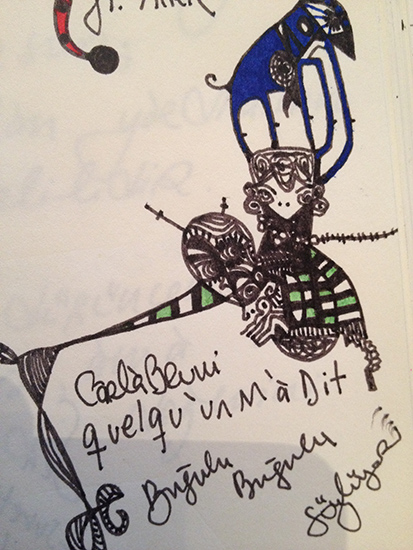 Carla Bruni
quelqu'un M'à Dit
Buğulu Buğulu
Söylüyor